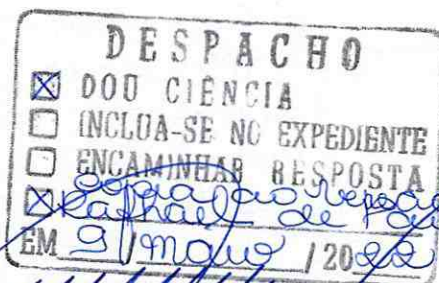 DESPACHO
☒ DOU CIÊNCIA
☐ INCLUA-SE NO EXPEDIENTE
☐ ENCAMINHAR RESPOSTA
☒ Cópia ao
Raphael de
EM 9 / maio / 2022